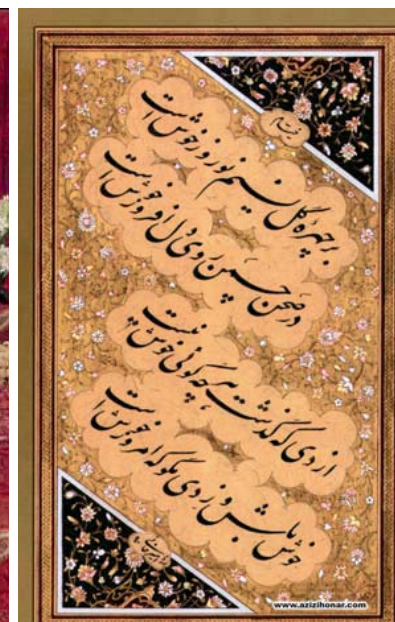 خیام
بر چهره گل نسیم نوروز خوش است
در صحن چمن روی دل افروز خوش است
از دی که گذشت هر چه گوئی خوش نیست
خوش باش و ز دی مگو که امروز خوش است
www.azizihonar.com